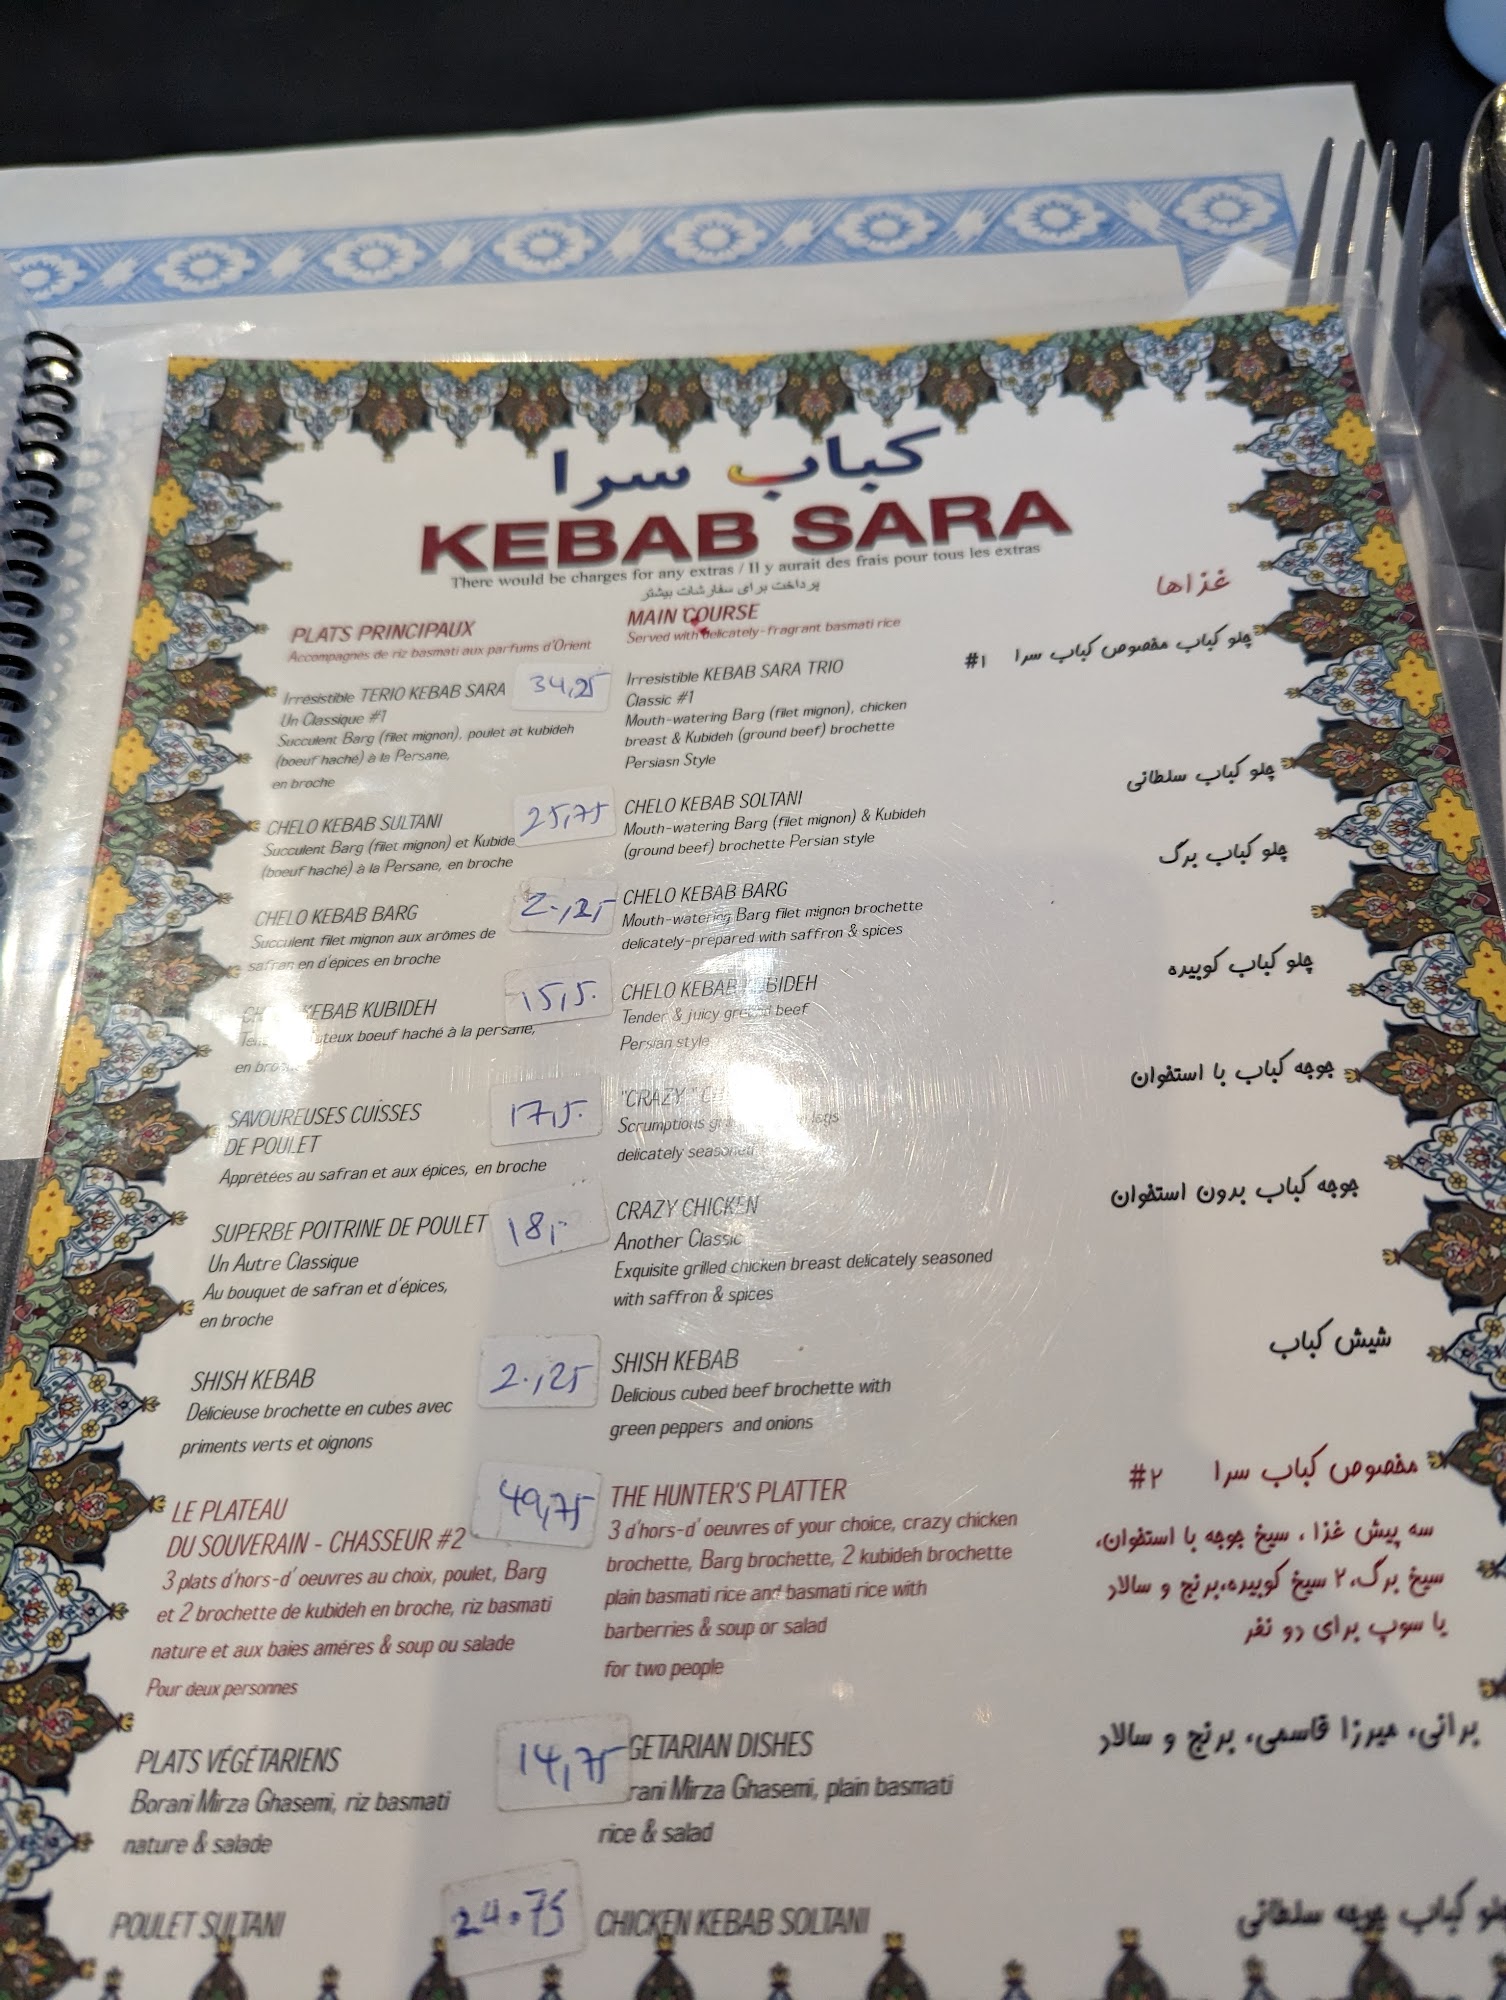 کباب سرا
KEBAB SARA
There would be charges for any extras / Il y aurait des frais pour tous les extras
پرداخت برای سفارشات بیشتر
غذاها
PLATS PRINCIPAUX
Accompagnés de riz basmati aux parfums d'Orient
MAIN COURSE
Served with delicately-fragrant basmati rice
Irrésistible TERIO KEBAB SARA
Un Classique #1
Succulent Barg (filet mignon), poulet at kubideh
(boeuf haché) à la Persane,
en broche
34,25
Irresistible KEBAB SARA TRIO
Classic #1
Mouth-watering Barg (filet mignon), chicken
breast & Kubideh (ground beef) brochette
Persiasn Style
چلو کباب مخصوص کباب سرا #۱
CHELO KEBAB SULTANI
Succulent Barg (filet mignon) et Kubide
(boeuf haché) à la Persane, en broche
25,75
CHELO KEBAB SOLTANI
Mouth-watering Barg (filet mignon) & Kubideh
(ground beef) brochette Persian style
چلو کباب سلطانی
CHELO KEBAB BARG
Succulent filet mignon aux arômes de
safran en d'épices en broche
2.,25
CHELO KEBAB BARG
Mouth-watering Barg filet mignon brochette
delicately-prepared with saffron & spices
چلو کباب برگ
KEBAB KUBIDEH
boeuf haché à la persane,
en
15,5.
CHELO KEBAB KUBIDEH
Tender & juicy ground beef
Persian style
چلو کباب کوبیده
SAVOUREUSES CUISSES
DE POULET
Apprêtées au safran et aux épices, en broche
17,5.
"CRAZY"
Scrumptious legs
delicately seasoned
جوجه کباب با استخوان
SUPERBE POITRINE DE POULET
Un Autre Classique
Au bouquet de safran et d'épices,
en broche
18,-
CRAZY CHICKEN
Another Classic
Exquisite grilled chicken breast delicately seasoned
with saffron & spices
جوجه کباب بدون استخوان
SHISH KEBAB
Délicieuse brochette en cubes avec
priments verts et oignons
2.,25
SHISH KEBAB
Delicious cubed beef brochette with
green peppers and onions
شیش کباب
LE PLATEAU
DU SOUVERAIN - CHASSEUR #2
3 plats d'hors-d' oeuvres au choix, poulet, Barg
et 2 brochette de kubideh en broche, riz basmati
nature et aux baies améres & soup ou salade
Pour deux personnes
49,75
THE HUNTER'S PLATTER
3 d'hors-d' oeuvres of your choice, crazy chicken
brochette, Barg brochette, 2 kubideh brochette
plain basmati rice and basmati rice with
barberries & soup or salad
for two people
مخصوص کباب سرا #۲
سه پیش غذا ، سیخ جوجه با استخوان،
سیخ برگ، ۲ سیخ کوبیده،برنج و سالاد
یا سوپ برای دو نفر
PLATS VÉGÉTARIENS
Borani Mirza Ghasemi, riz basmati
nature & salade
14,75
GETARIAN DISHES
rani Mirza Ghasemi, plain basmati
rice & salad
برانی، میرزا قاسمی، برنج و سالاد
POULET SULTANI
24.75
CHICKEN KEBAB SOLTANI
کباب جوجه سلطانی